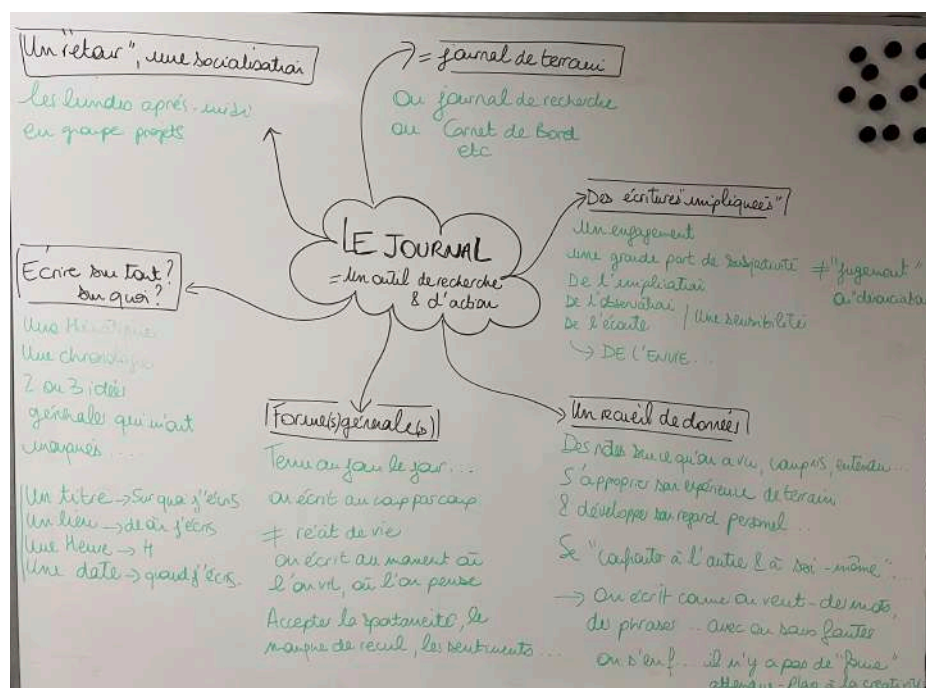 Un "retour", une socialisation
les lundis après-midi
en groupe projets
= journal de terrain
Ou journal de recherche
ou Carnet de Bord
etc
LE JOURNAL
= Un outil de recherche
& d'action
Des écritures "impliquées"
Un engagement
une grande part de subjectivité ≠ "jugement"
De l'implication
De l'observation
De l'écoute / Une sensibilité
↳ DE L'ENVIE...
Ecrire sur tout?
sur quoi?
Une thématique
Une chronologie
2 ou 3 idées
générales qui m'ont
marquées...
Un titre → Sur quoi j'écris
Un lieu → de où j'écris
Une Heure → H
Une date → quand j'écris.
Forme(s) générale(s)
Tenu au jour le jour...
on écrit au coup par coup
≠ récit de vie
on écrit au moment où
l'on vit, où l'on pense
Accepter la spontanéité, le
manque de recul, les sentiments...
Un recueil de données
Des notes sur ce qu'on a vu, compris, entendu...
S'approprier son expérience de terrain
& développer son regard personnel...
Se "confronter à l'autre & à soi-même"...
→ On écrit comme on veut - des mots,
des phrases... avec ou sans fautes
on s'en f... il n'y a pas de "forme"
attendue - Place à la créativité